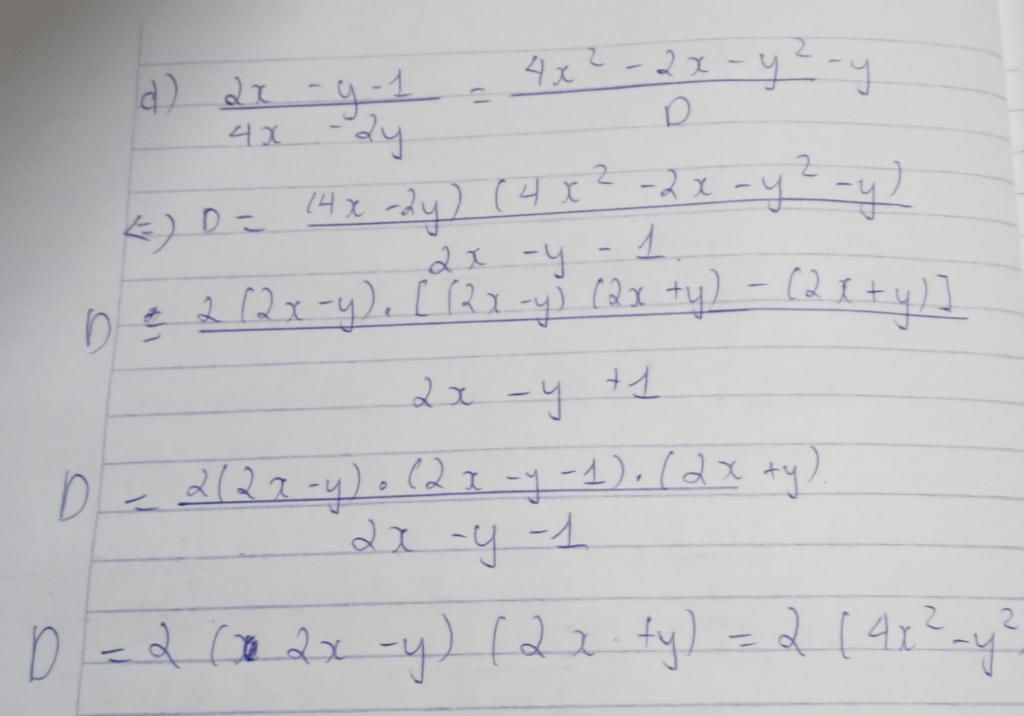 d) (2x - y - 1)/(4x - 2y) = (4x² - 2x - y² - y)/D
<=> D = ((4x - 2y) (4x² - 2x - y² - y))/(2x - y - 1)
D = (2(2x - y). [(2x - y) (2x + y) - (2x + y)])/(2x - y + 1)
D = (2(2x - y).(2x - y - 1).(2x + y))/(2x - y - 1)
D = 2 (2x - y) (2x + y) = 2 (4x² - y²